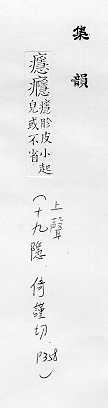 集韻
癮㿼癮胗皮小起
皃或不省
上聲
(十九隱．倚謹切．P358)